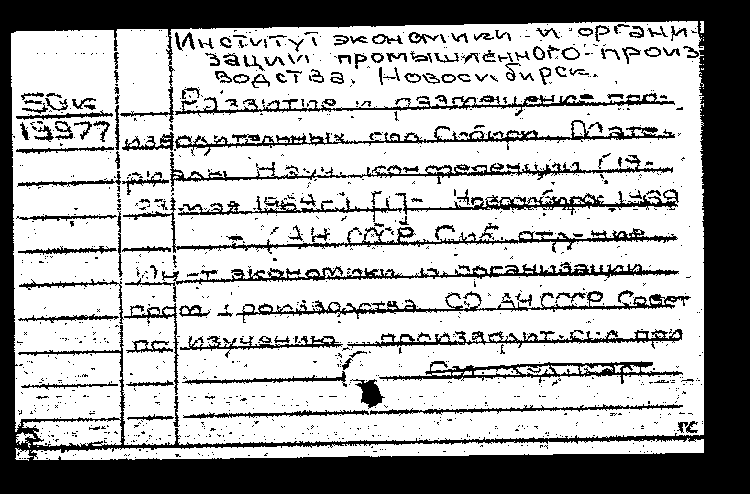 Институт экономики и органи-
зации промышленного произ-
водства, Новосибирск.
50к Развитие и размещение про-
19977 изводительных сил Сибири. Мате-
риалы Науч. конференции (19-
23 мая 1969г.). [1]- Новосибирск 1969
- (АН СССР Сиб. отд-ние
Ин-т экономики и организации
пром. производства СО АН СССР Совет
по изучению производит. сил при
См. след. карт.
ПС